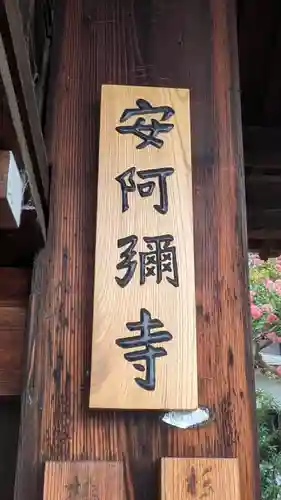 安阿彌寺